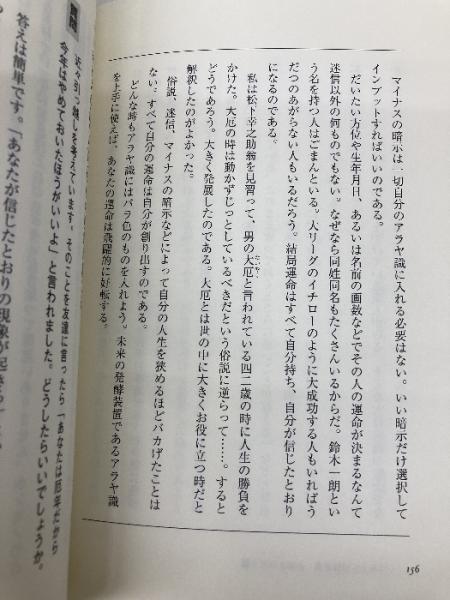 マイナスの暗示は一切自分のアラヤ識に入れる必要はない。いい暗示だけ選択して
インプットすればいいのである。
だいたい方位や生年月日、あるいは名前の画数などでその人の運命が決まるなんて
迷信以外の何ものでもない。なぜなら同姓同名もたくさんいるからだ。鈴木一朗とい
う名を持つ人はごまんといる。大リーグのイチローのように大成功する人もいればう
だつのあがらない人もいるだろう。結局運命はすべて自分持ち、自分が信じたとおり
になるのである。
私は松下幸之助翁を見習って、男の大厄と言われている四二歳の時に人生の勝負を
かけた。大厄の時は動かずじっとしているべきだという俗説に逆らって……。すると
どうであろう。大きく発展したのである。大厄とは世の中に大きくお役に立つ時だと
解釈したのがよかった。
俗説、迷信、マイナスの暗示などによって自分の人生を狭めるほどバカげたことは
ない。すべて自分の運命は自分が創り出すのである。
どんな時もアラヤ識にはバラ色のものを入れよう。未来の発酵装置であるアラヤ識
を上手に使えば、あなたの運命は飛躍的に好転する。
156
質問
近々引っ越しを考えています。そのことを友達に言ったら「あなたは厄年だから
今年はやめておいたほうがいいよ」と言われました。どうしたらいいでしょうか。
答えは簡単です。「あなたが信じたとおりの現象が起き